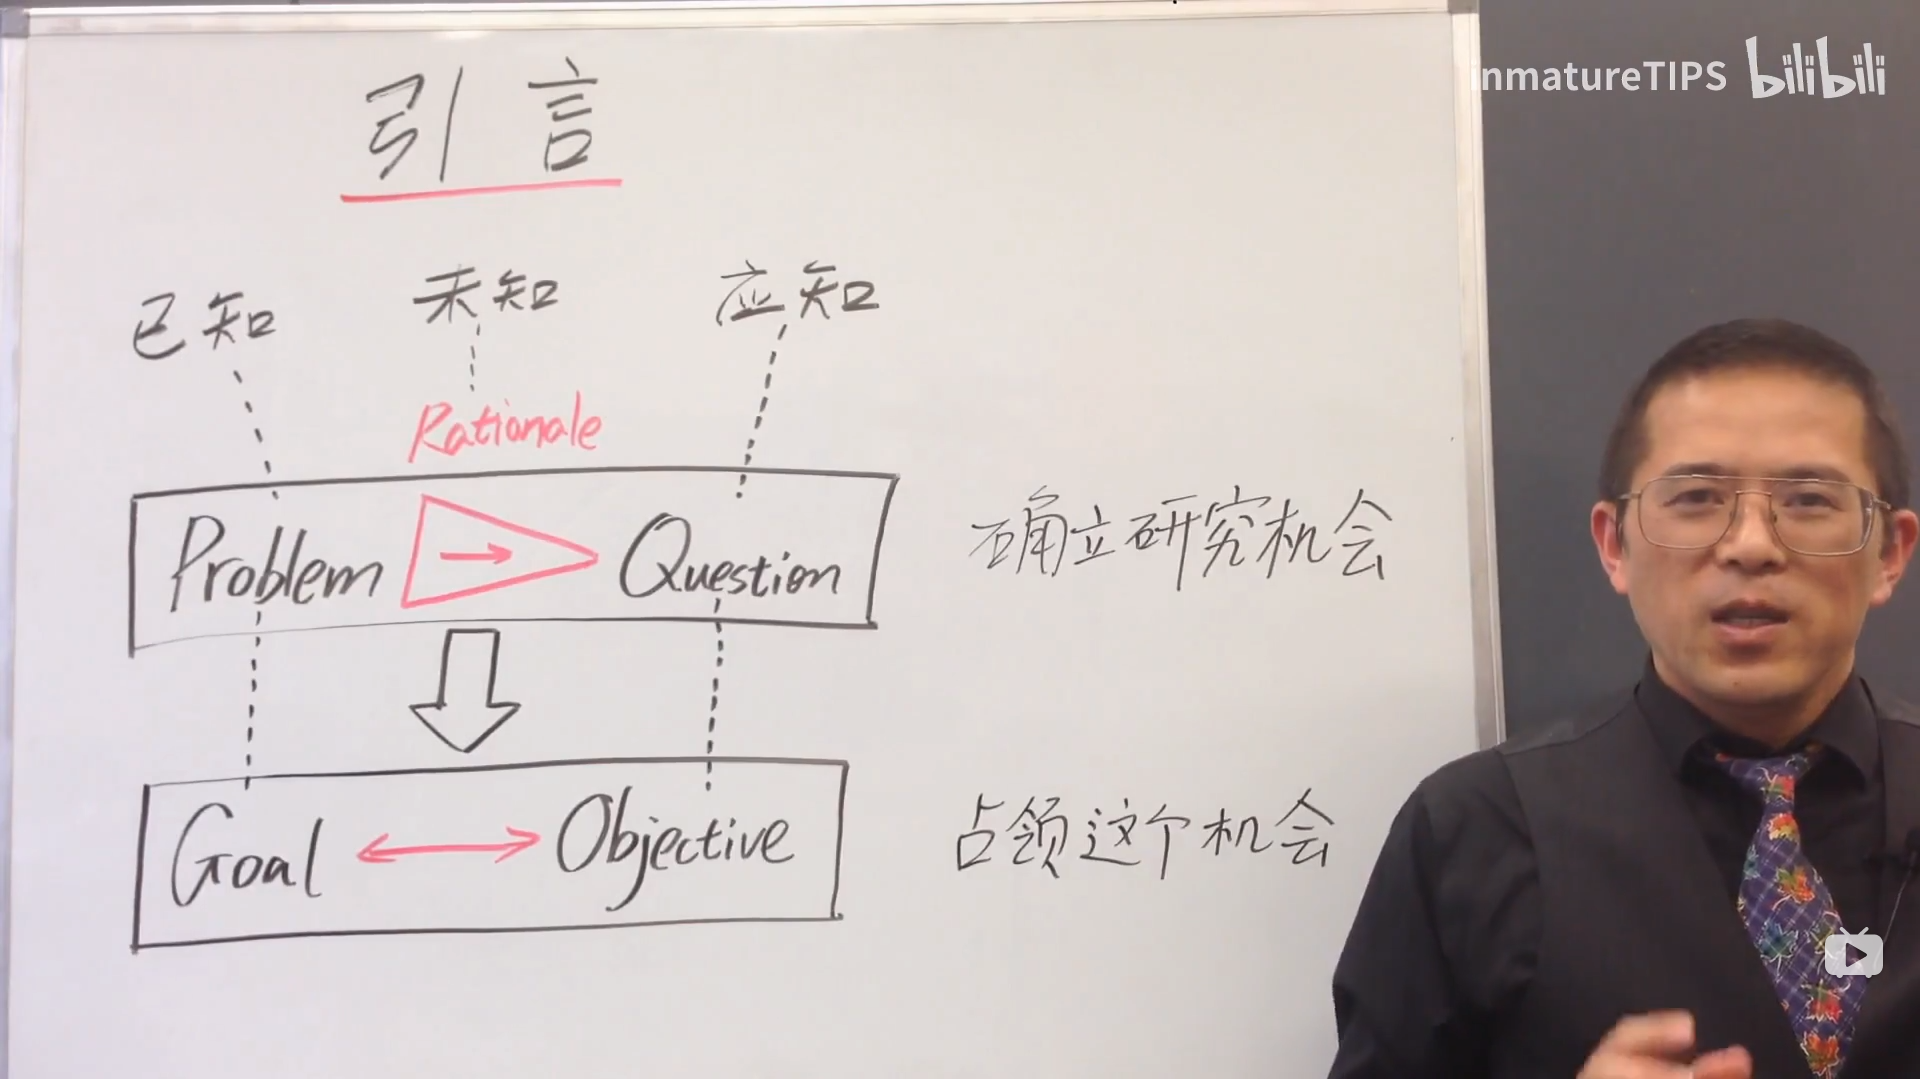 inmatureTIPS bilibili
引言
已知 未知 应知
Rationale
Problem → Question 确立研究机会
Goal ↔ Objective 占领这个机会